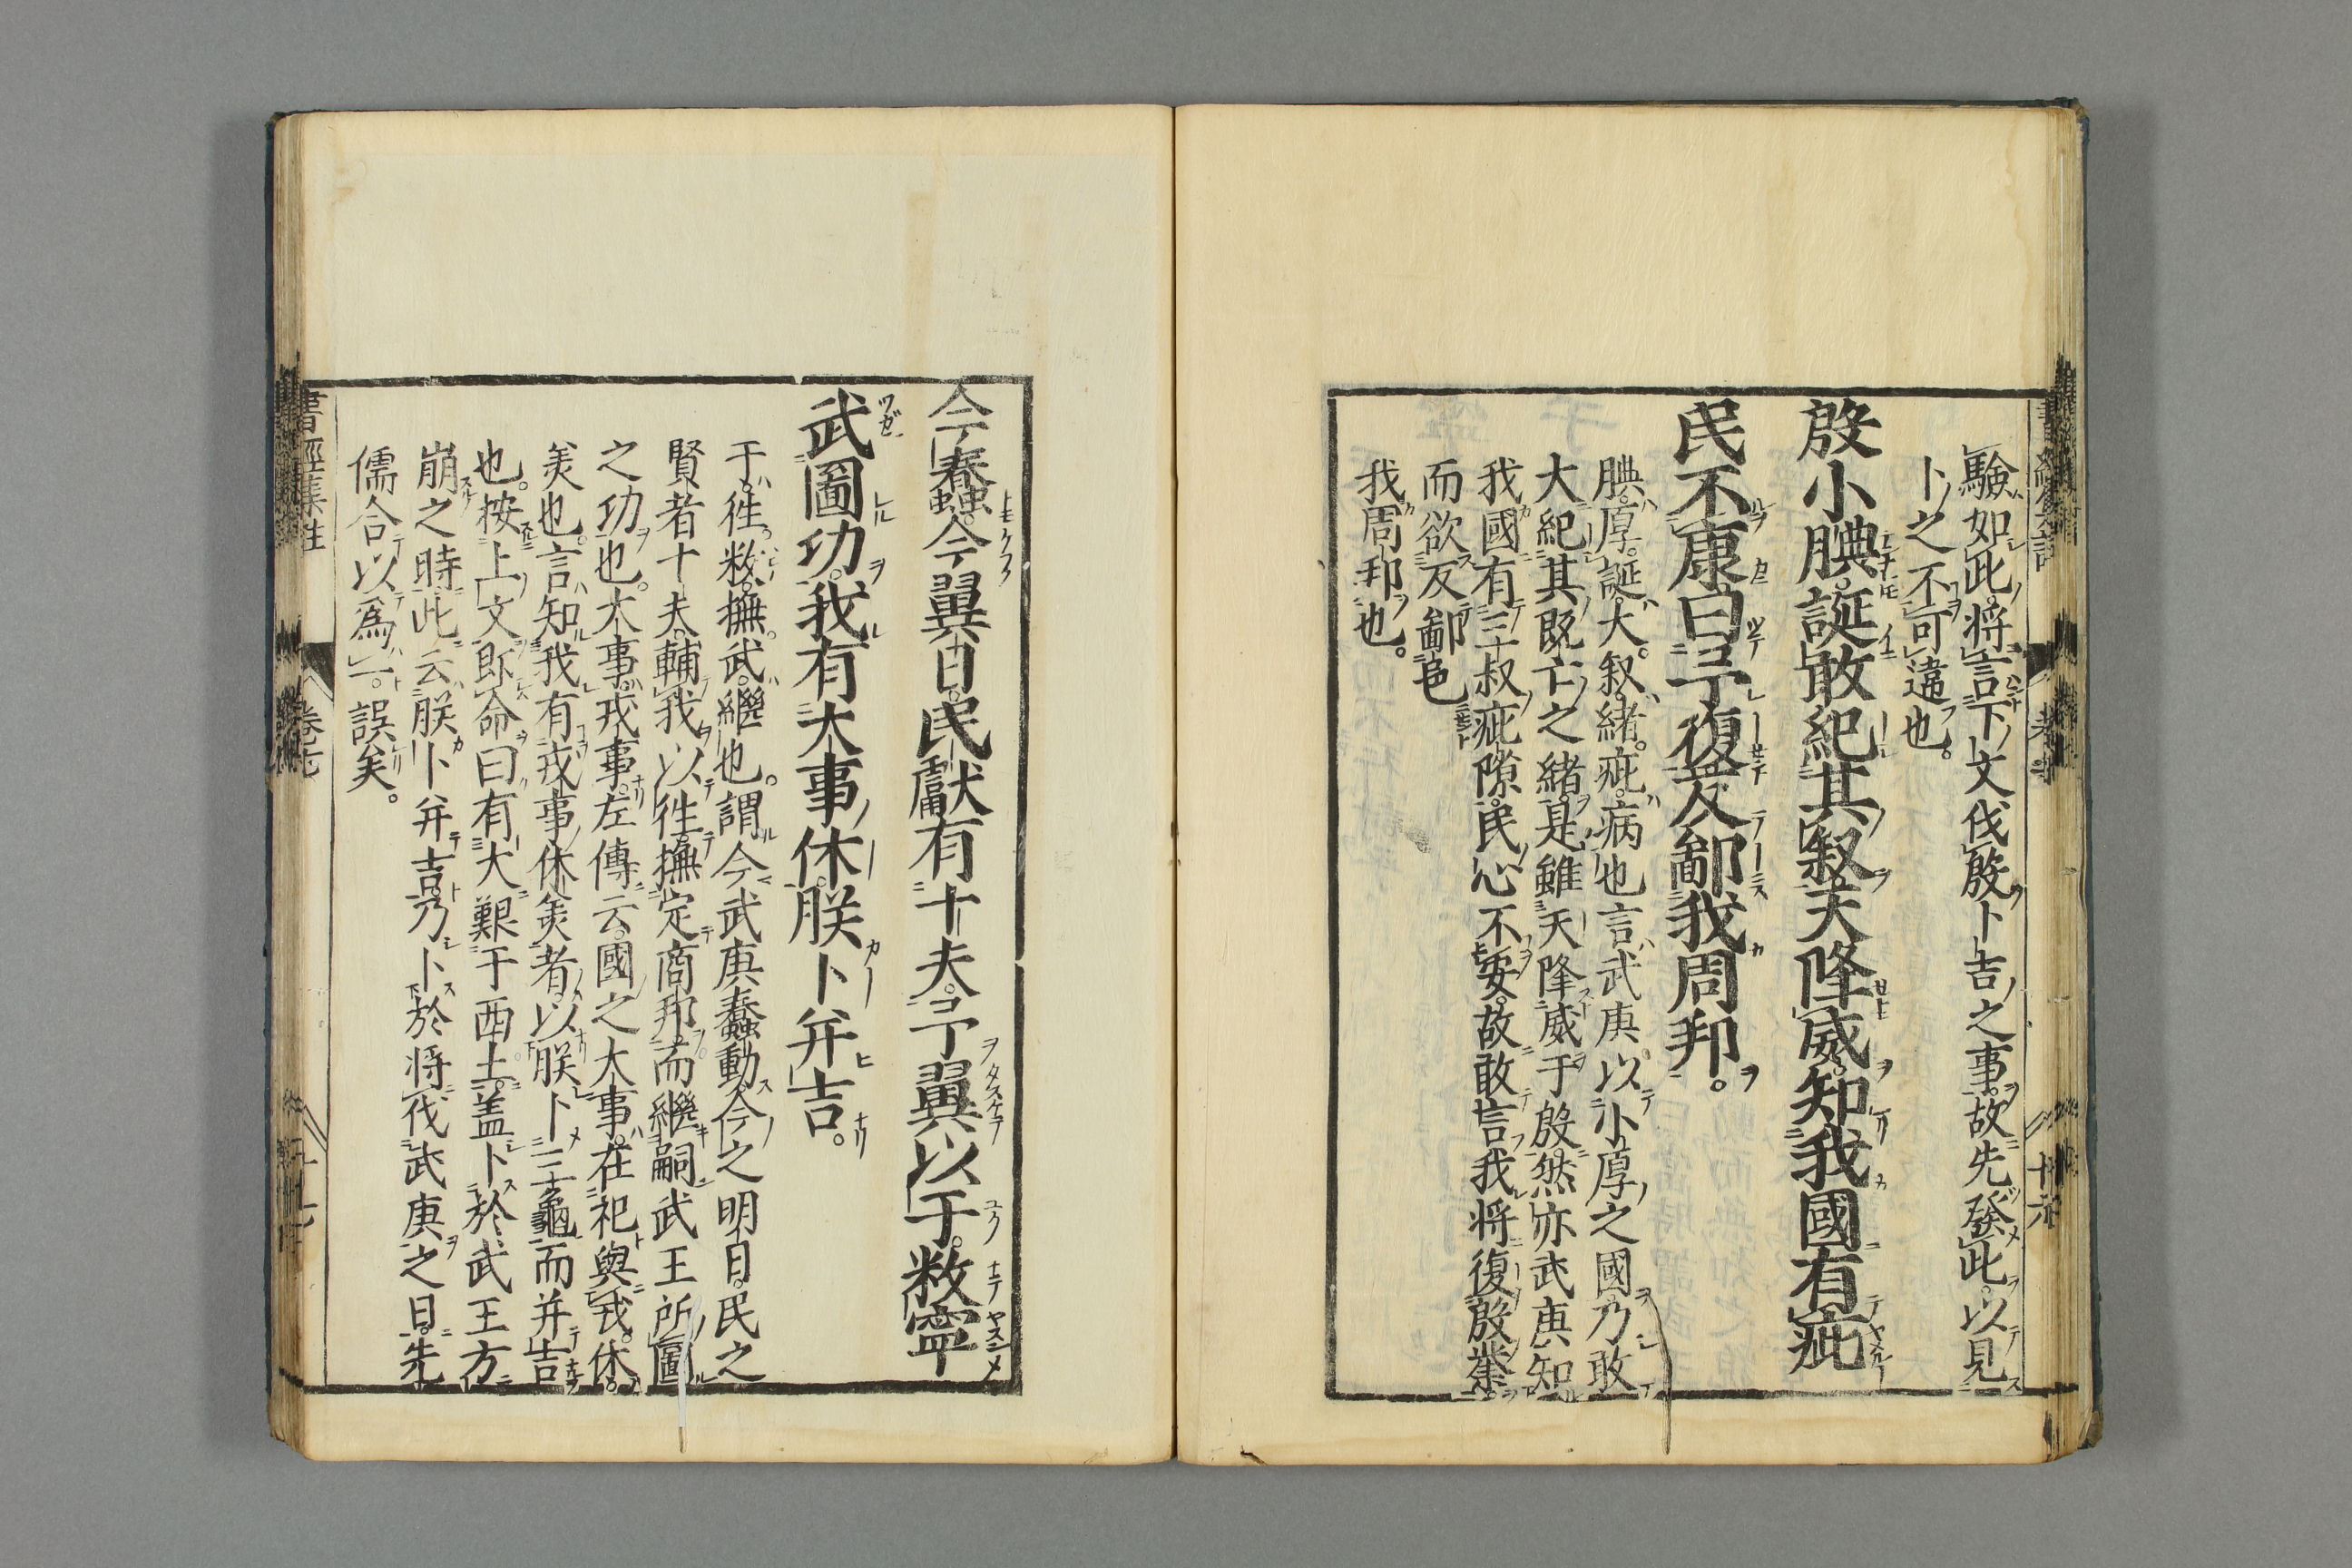 驗如此。將言下文伐殷卜吉之事。故先發此。以見
卜之不可違也。
殷小腆。誕敢紀其叙。天降威。知我國有疵
民不康。曰予復。反鄙我周邦。
腆。厚。誕。大。叙。緒。疵。病也。言武庚以小厚之國。乃敢
大紀其既亡之緒。是雖天降威于殷。然亦武庚知
我國有三叔疵隙。民心不安。故敢言我將復殷業。
而欲反鄙邑
我周邦也。
今蠢。今翼日。民獻有十夫。予翼以于。敉寧
武圖功。我有大事休。朕卜并吉。
于。往。敉。撫。武。繼也。謂今武庚蠢動。今之明日。民之
賢者十夫。輔我以往。撫定商邦。而繼嗣武王所圖
之功也。大事。戎事。左傳云。國之大事。在祀與戎。休。
美也。言知我有戎事休美者。以朕卜三龜而并吉
也。按上文即命曰。有大艱于西土。蓋卜於武王方
崩之時。此云朕卜并吉。乃卜於將伐武庚之日。先
儒合以爲一。誤矣。
書經集註
卷七
十七